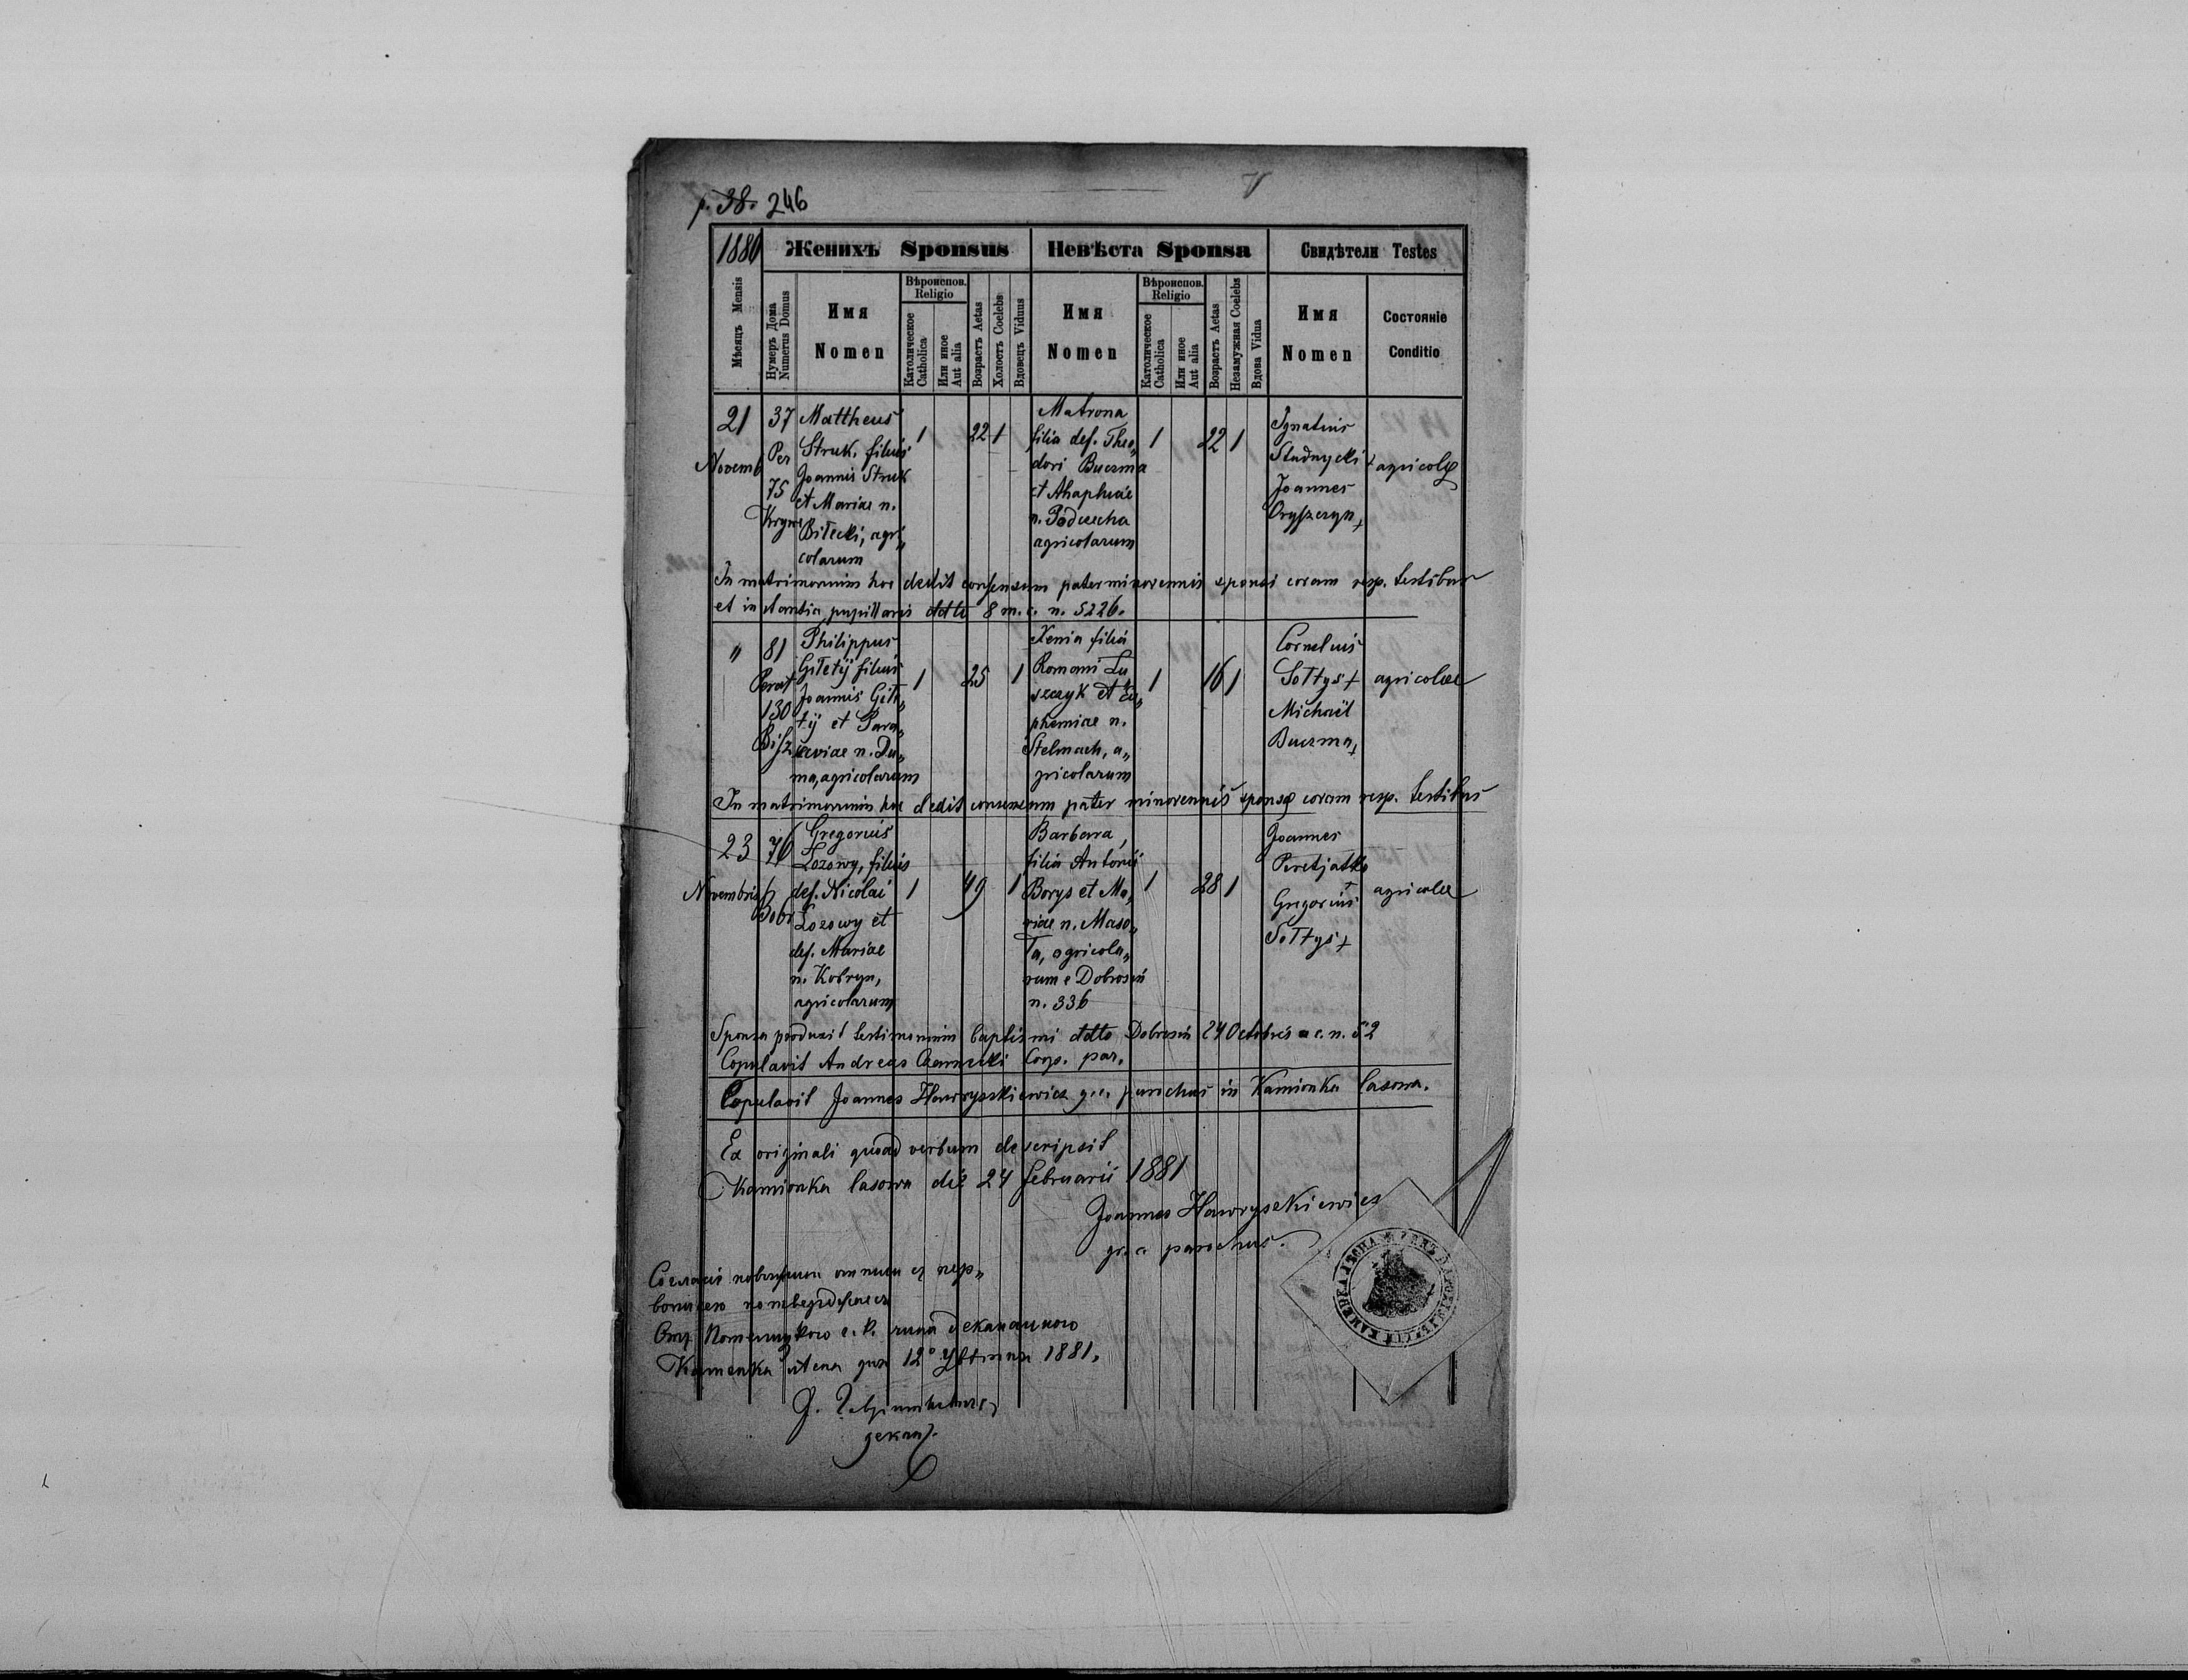 p. 38. 246
1880 Женихъ Sponsus Невѣста Sponsa Свидѣтели Testes
Мѣсяцъ Mensis
Нумеръ Дома Numerus Domus
Имя Nomen
Вѣроиспов. Religio
Католическое Catholica
Или иное Aut alia
Возрастъ Aetas
Холостъ Coelebs
Вдовецъ Viduus
Имя Nomen
Вѣроиспов. Religio
Католическое Catholica
Или иное Aut alia
Возрастъ Aetas
Незамужная Coelebs
Вдова Vidua
Имя Nomen
Состояніе Conditio
21
Novemb
37
Per
75
Mattheus
Struk, filius
Joannis Struk
et Mariae n.
Biłecki, agri„
colarum
1 22 1
Matrona
filia def. Theo„
dori Buczma
et Ahaphiae
n.
agricolarum
1 22 1
Ignatius
Studnycki +
Joannes
Oryszczyn +
agricolæ
In matrimonium hoc dedit consensum pater minorennis sponsi coram resp. testibus
et instantia pupillaris ddto 8 m. c. n. 5226.
„
81
130
Philippus
Giletij filius
Joannis Gile„
tij et Para„
sceviae n. Du„
ma, agricolarum
1 25 1
Xenia filia
Romani Lu
szczyk et Eu„
phemiae n.
Stelmach, a„
gricolarum
1 16 1
Cornelius
Sołtys +
Michaël
Buczma +
agricolae
In matrimonium hoc dedit consensum pater minorennis sponsæ coram resp. testibus
23
Novembris
76
Gregorius
Lozowy, filius
def. Nicolai
Lozowy et
def. Mariae
n. Kobryn,
agricolarum
1 49 1
Barbara,
filia Antonii
Borys et Ma„
riae n. Maso„
ła, agricola„
rum e Dobrosin
n. 336
1 28 1
Joannes
Peretjatko +
Gregorius
Sołtys +
agricolae
Sponsa produxit testimonium baptismi ddto Dobrosin 24 Octobris a c. n. 52
Copulavit Andreas Czarnecki Coop. par.
Copulavit Joannes Hawryszkiewicz g. c. parochus in Kamionka lasowa.
Ex originali quoad verbum descripsit
Kamionka lasowa die 24 februarii 1881
Joannes Hawryszkiewicz
gr. c. parochus.
1881.